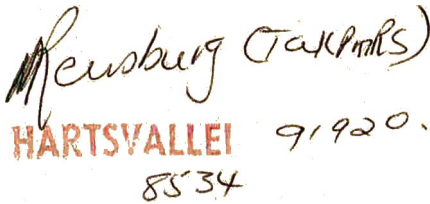 Rensburg (TAKPMRS)
HARTSVALLEI 91920.
8534